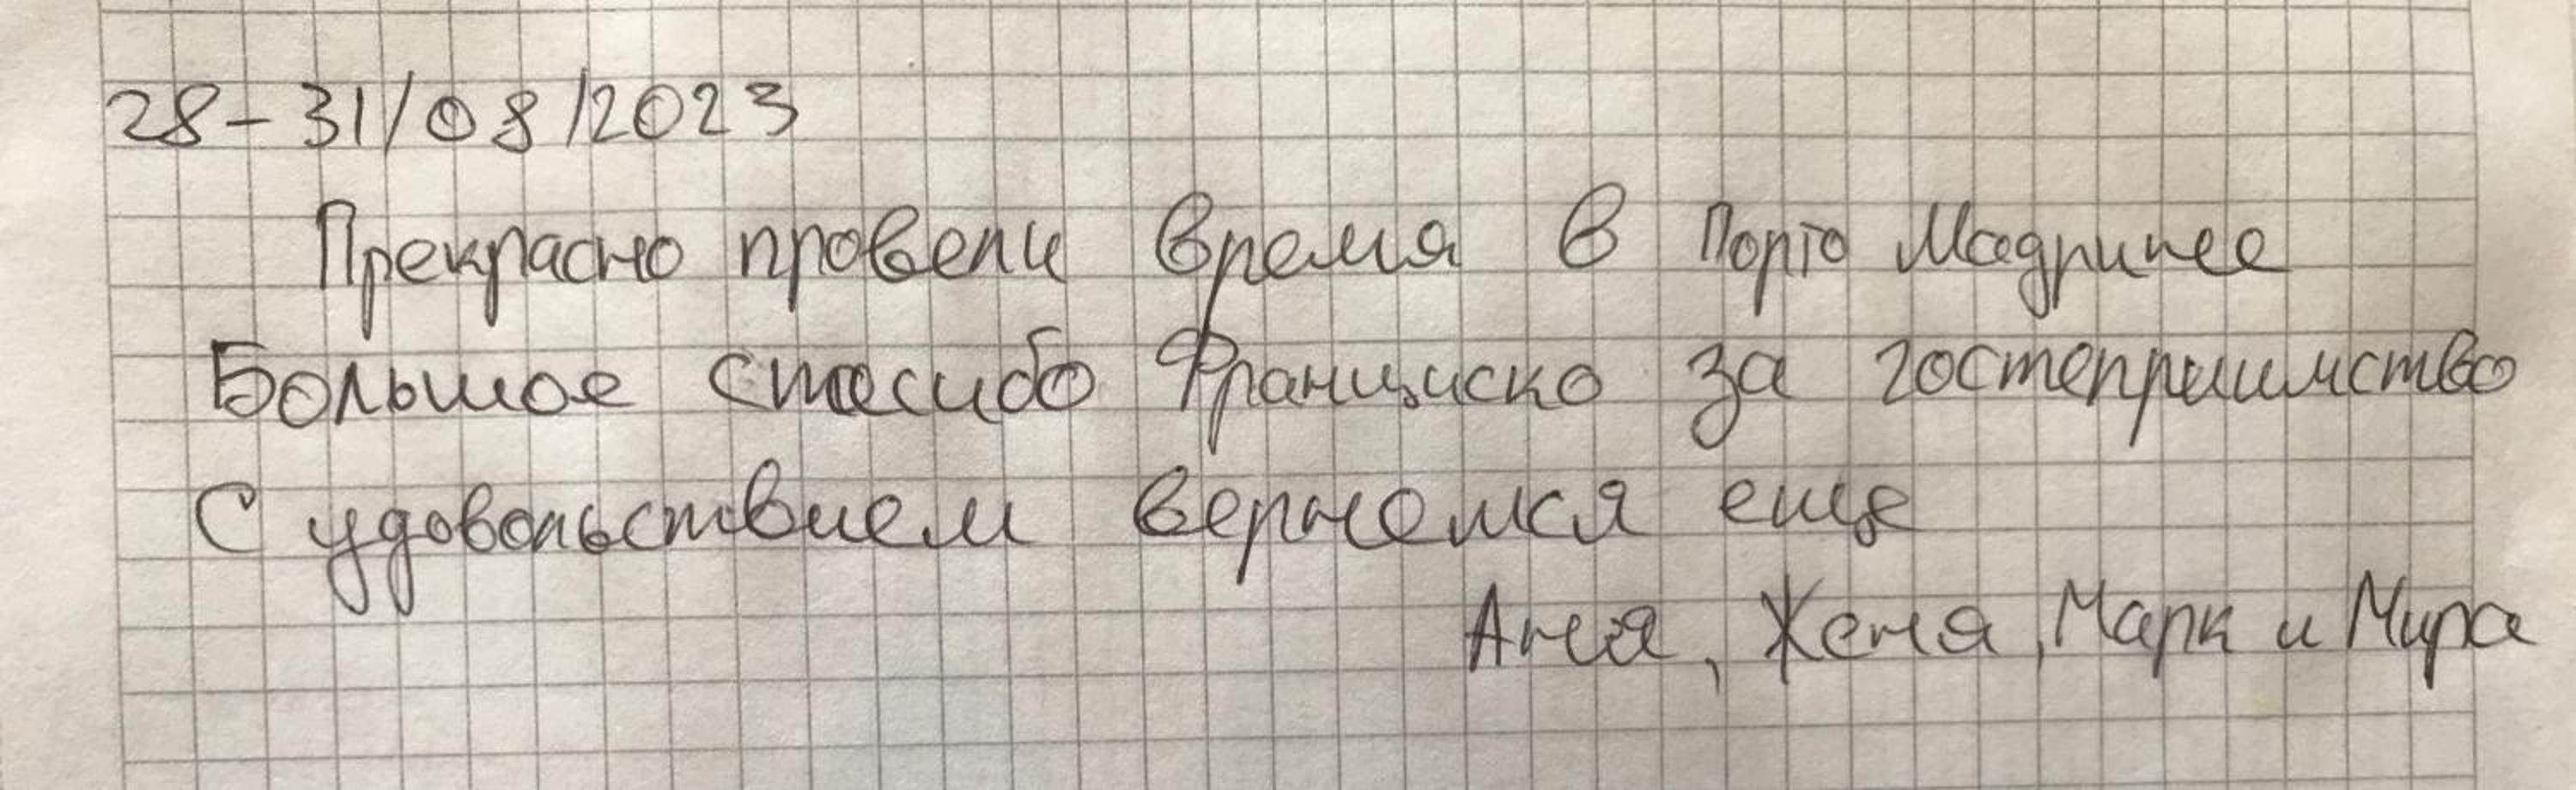 28-31/08/2023
Прекрасно провели время в Порто Мадрине
Большое спасибо Франциско за гостеприимство
С удовольствием вернемся еще
Аня, Женя, Марк и Мира